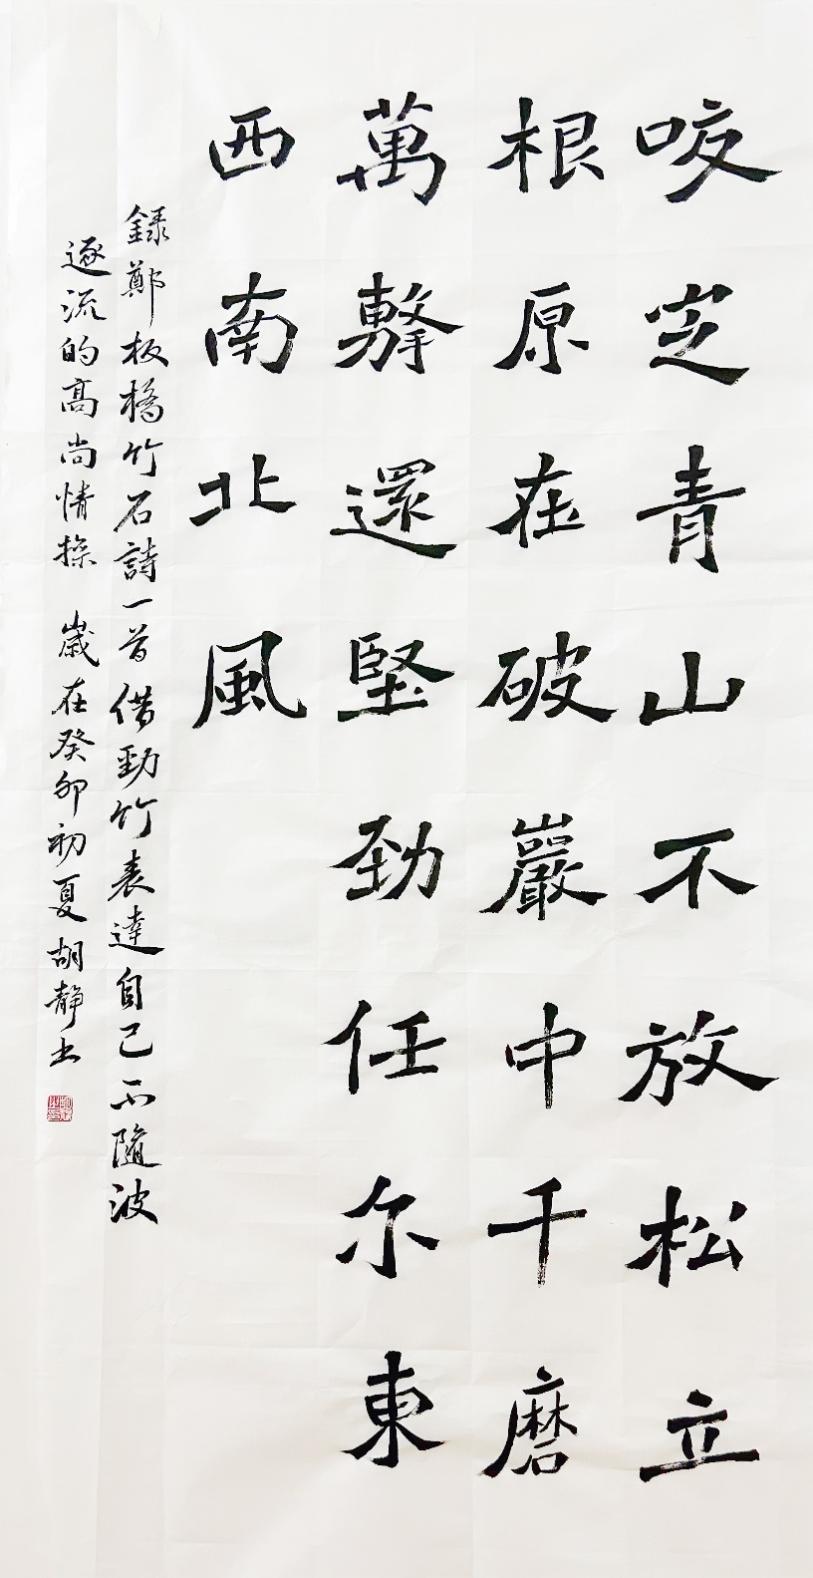 咬定青山不放松立
根原在破巖中千磨
萬擊還堅勁任尔東
西南北風
録鄭板橋竹石詩一首借勁竹表達自己不隨波
逐流的高尚情操 歲在癸卯初夏胡靜书